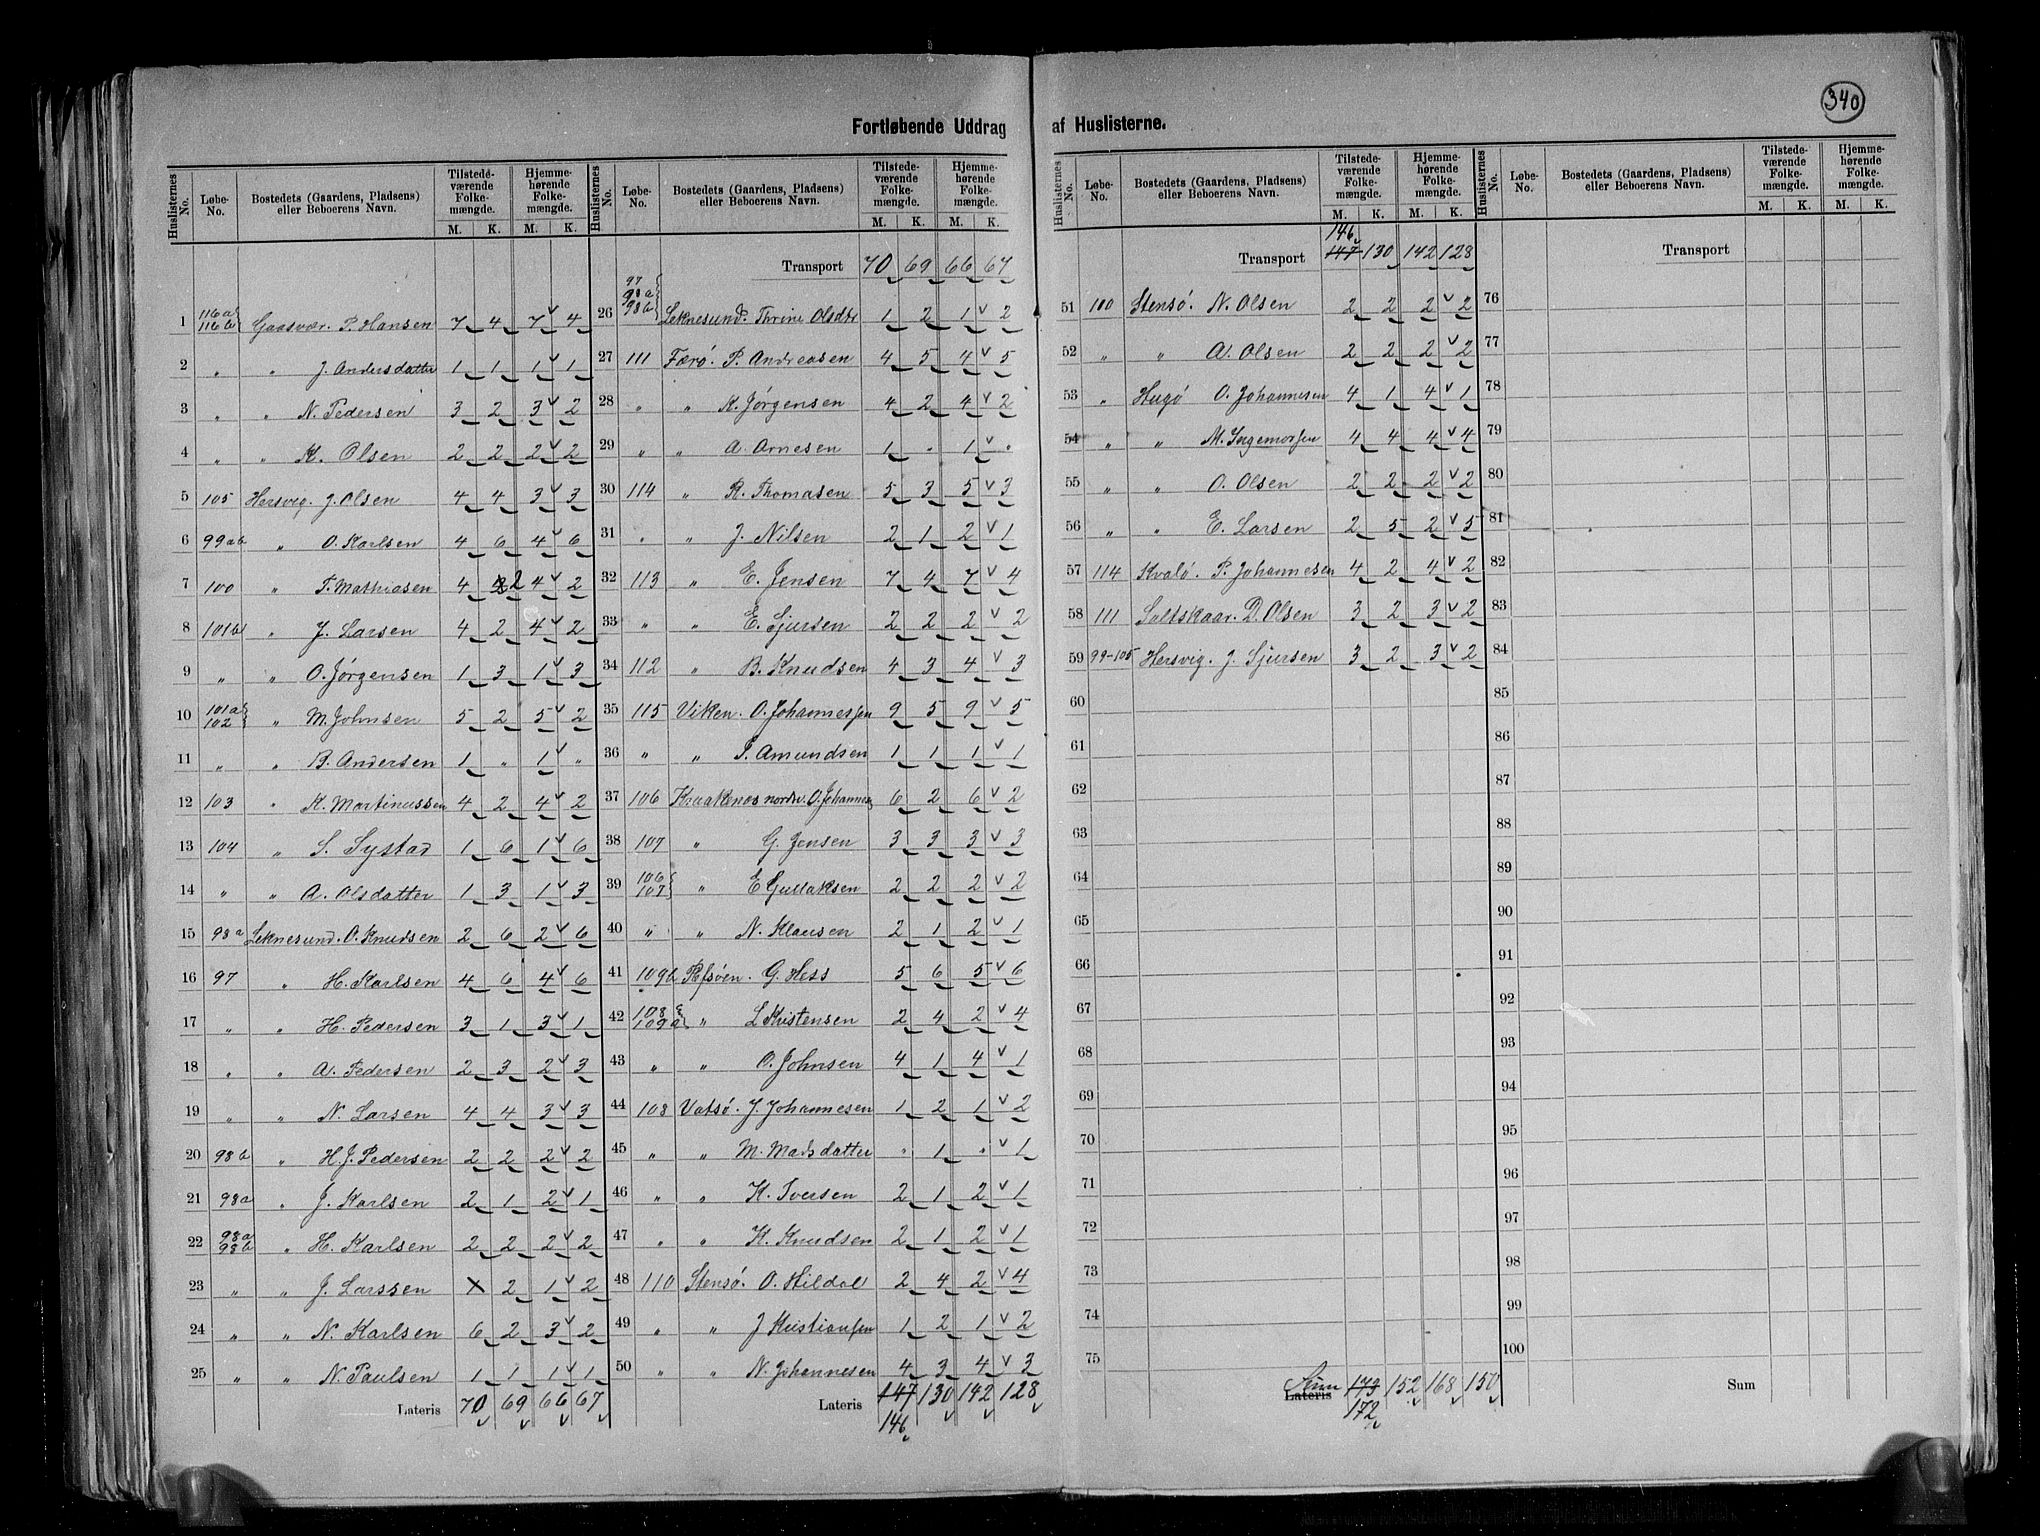 340
Fortløbende Uddrag af Huslisterne.
Huslisternes No. Løbe-No. Bostedets (Gaardens, Pladsens) eller Beboerens Navn. Tilstedeværende Folkemængde. M. K. Hjemmehørende Folkemængde. M. K.
1 116a 116b Gaasvær. P. Hansen 7 4 7 4
2 " " J. Andersdatter 1 1 1 1
3 " " N. Pedersen 3 2 3 2
4 " " K. Olsen 2 2 2 2
5 105 Hersvig. J. Olsen 4 4 3 3
6 99ab " O. Karlsen 4 6 4 6
7 100 " T. Mathiasen 4 2 4 2
8 101b " J. Larsen 4 2 4 2
9 " " O. Jørgensen 1 3 1 3
10 101a 102 " M. Johnsen 5 2 5 2
11 " " B. Andersen 1 " 1 "
12 103 " K. Martinussen 4 2 4 2
13 104 " S. Systad 1 6 1 6
14 " " A. Olsdatter 1 3 1 3
15 98a Leknesund. O. Knudsen 2 6 2 6
16 97 " H. Karlsen 4 6 4 6
17 " " H. Pedersen 3 1 3 1
18 " " A. Pedersen 2 3 2 3
19 " " N. Larsen 4 4 3 3
20 98b " H. J. Pedersen 2 2 2 2
21 98a " J. Karlsen 2 1 2 1
22 98a 98b " H. Karlsen 2 2 2 2
23 " " J. Larssen 2 1 2
24 " " N. Karlsen 6 2 3 2
25 " " N. Paulsen 1 1 1 1
Lateris 70 69 66 67
Huslisternes No. Løbe-No. Bostedets (Gaardens, Pladsens) eller Beboerens Navn. Tilstedeværende Folkemængde. M. K. Hjemmehørende Folkemængde. M. K.
Transport 70 69 66 67
26 97 98a 98b Leknesund. Thrine Olsdtr 1 2 1 2
27 111 Færø. P. Andreasen 4 5 4 5
28 " " K. Jørgensen 4 2 4 2
29 " " A. Arnesen 1 " 1 "
30 114 " R. Thomasen 5 3 5 3
31 " " J. Nilsen 2 1 2 1
32 113 " E. Jensen 7 4 7 4
33 " " E. Sjursen 2 2 2 2
34 112 " B. Knudsen 4 3 4 3
35 115 Viken. O. Johannessen 9 5 9 5
36 " " S. Amundsen 1 1 1 1
37 106 Kraakenos nordre. O. Johannes 6 2 6 2
38 107 " G. Jensen 3 3 3 3
39 106 107 " E Gullaksen 2 2 2 2
40 " " N. Klausen 2 1 2 1
41 109b Refsøen. G. Hess 5 6 5 6
42 108 109a " L Kristensen 2 4 2 4
43 " " O. Johnsen 4 1 4 1
44 108 Vatsø. J. Johannesen 1 2 1 2
45 " " M. Madsdatter " 1 " 1
46 " " K. Iversen 2 1 2 1
47 " " K. Knudsen 2 1 2 1
48 110 Stensø. O. Hildal 2 4 2 4
49 " " J Kristiansen 1 2 1 2
50 " " N. Johannesen 4 3 4 3
Lateris 147 130 142 128
146
Huslisternes No. Løbe-No. Bostedets (Gaardens, Pladsens) eller Beboerens Navn. Tilstedeværende Folkemængde. M. K. Hjemmehørende Folkemængde. M. K.
146
Transport 147 130 142 128
51 110 Stensø. N. Olsen 2 2 2 2
52 " " A. Olsen 2 2 2 2
53 " Hugø O. Johannesen 4 1 4 1
54 " " M. Ingemorsen 4 4 4 4
55 " " O. Olsen 2 2 2 2
56 " " E. Larsen 2 5 2 5
57 114 Kvalø. P. Johannesen 4 2 4 2
58 111 Saltskaar. D. Olsen 3 2 3 2
59 99-105 Hersvig. J. Sjursen 3 2 3 2
60
61
62
63
64
65
66
67
68
69
70
71
72
73
74
75
Sum
Lateris 173 152 168 150
172
Huslisternes No. Løbe-No. Bostedets (Gaardens, Pladsens) eller Beboerens Navn. Tilstedeværende Folkemængde. M. K. Hjemmehørende Folkemængde. M. K.
Transport
76
77
78
79
80
81
82
83
84
85
86
87
88
89
90
91
92
93
94
95
96
97
98
99
100
Sum